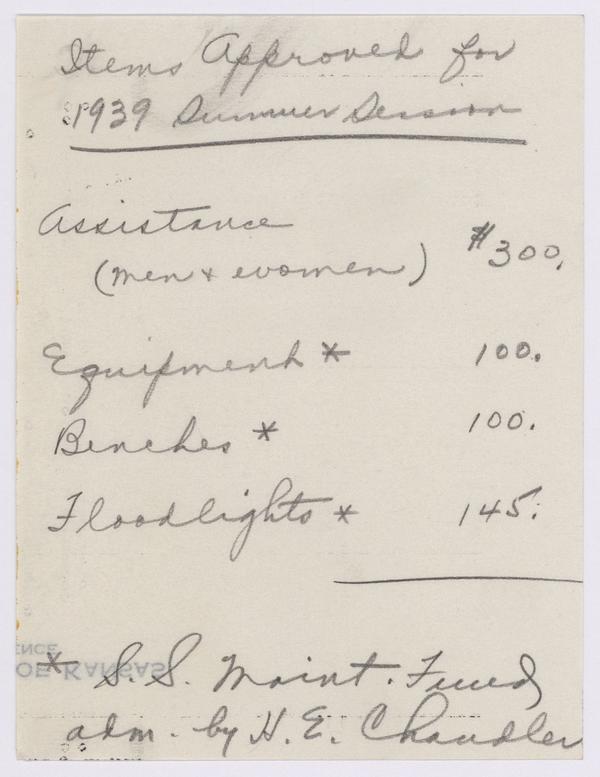 Items Approved for
1939 Summer Session
Assistance
(men & women) $300.
Equipment * 100.
Benches * 100.
Floodlights * 145.
ENCE
OF KANSAS
* S.S. Maint. Fund
adm. by H. E. Chandler